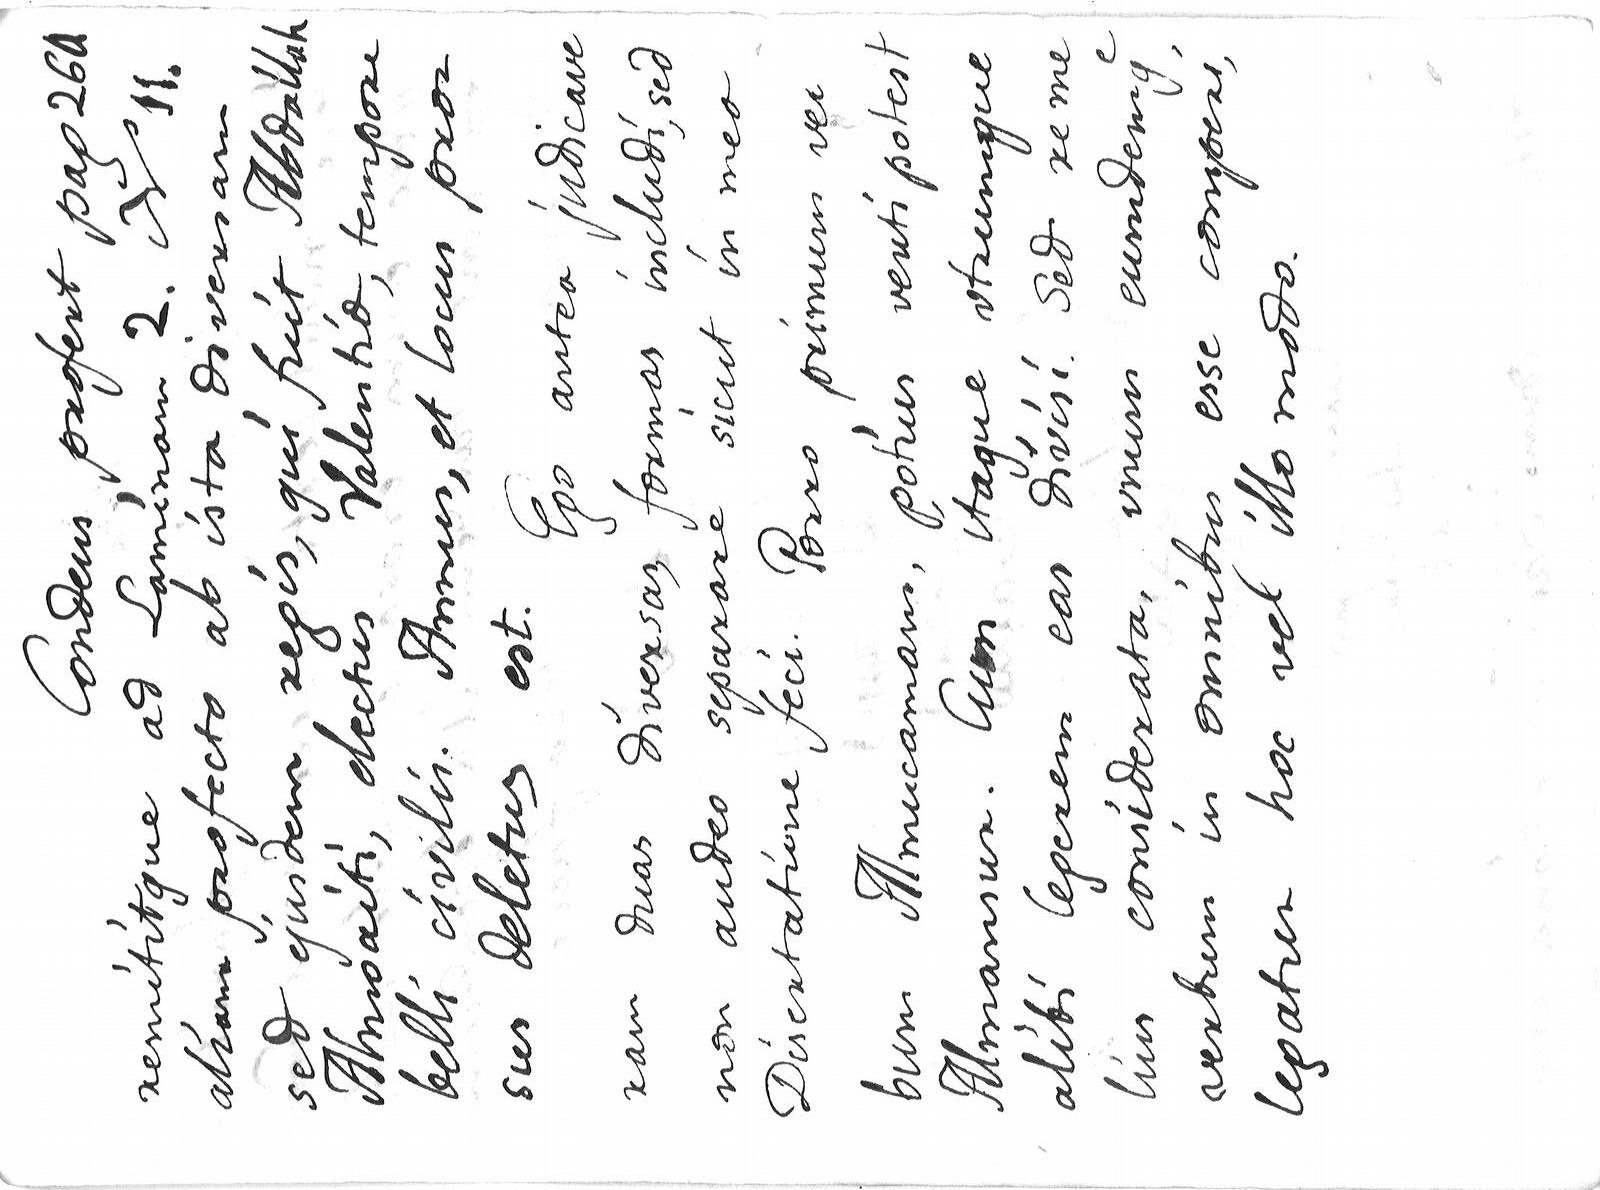 Condeus profert pag 260
remititque ad Laminam 2. Nº 11.
aliam profecto ab ista diversam
sed ejusdem regis, qui fuit Abdallah
Almoaiti, electus Valentiæ, tempore
belli civilis. Annus, et locus pror
sus deletus est.
Ego antea judicave
ram duas diversas formas includi, sed
non audeo separare sicut in mea
Disertatione feci. Porro primum ver
bum Almucamam, potius verti potest
Almansur. Cum itaque utrumque
alibi legerem eas divisi. Sed re me
lius considerata, unum eumdemqe
verbum in omnibus esse comperi,
legatur hoc vel illo modo.